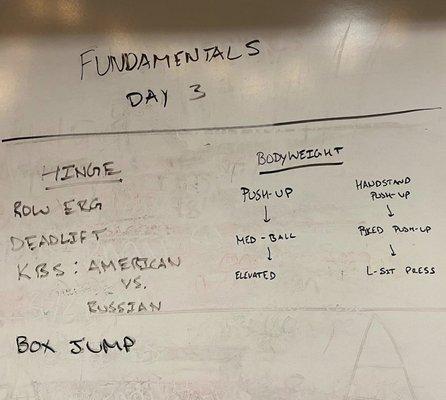 FUNDAMENTALS
DAY 3
HINGE
ROW ERG
DEADLIFT
KBS: AMERICAN
VS.
RUSSIAN
BOX JUMP
BODYWEIGHT
PUSH-UP
↓
MED-BALL
↓
ELEVATED
HANDSTAND
PUSH-UP
↓
PIKED PUSH-UP
↓
L-SIT PRESS